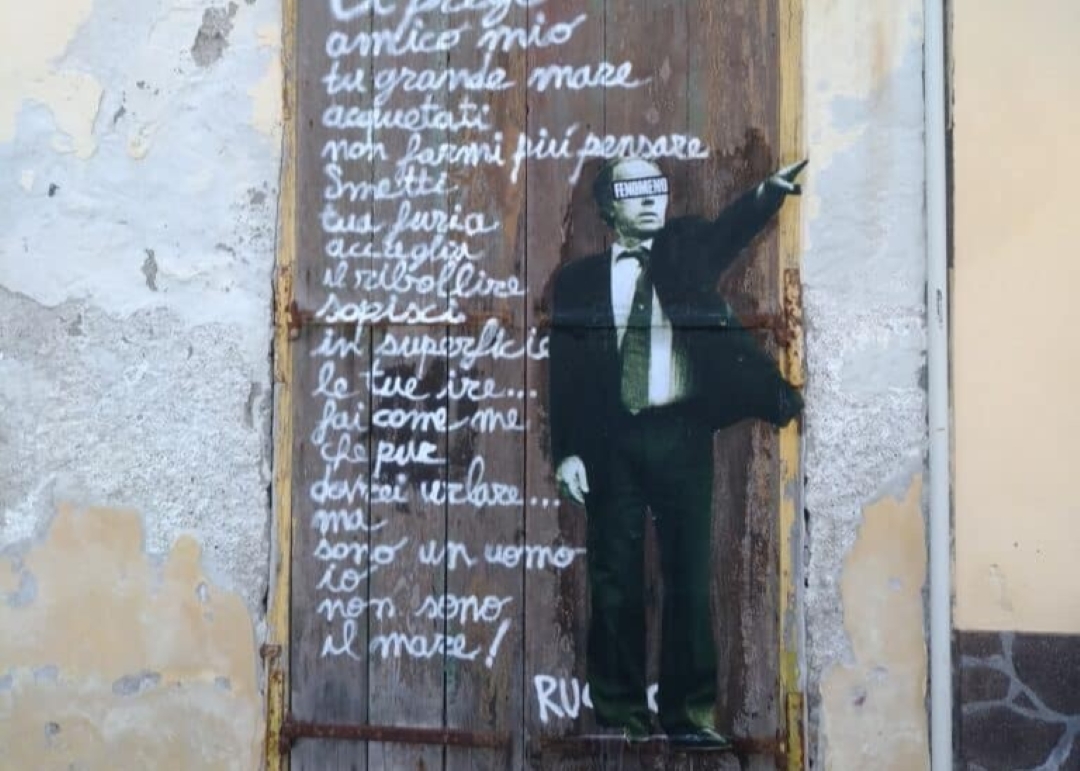 Ti prego
amico mio
tu grande mare
acquetati
non farmi piú pensare
Smetti
tua furia
accogli
il ribollire
sopisci
in superficie
le tue ire...
fai come me
che pur
dovrei urlare...
ma
sono un uomo
io
non sono
il mare!
FENOMENO